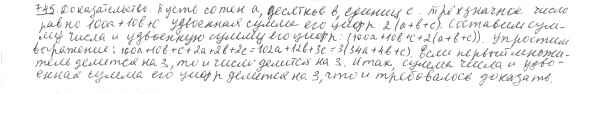 745. Доказательство. Пусть сотен a, десятков b, единиц c. Трёхзначное число
равно 100a+10b+c удвоенная сумма его цифр 2(a+b+c). Составим сум-
му числа и удвоенную сумму его цифр: (100a+10b+c+2(a+b+c)). Упростим
выражение: 100a+10b+c+2a+2b+2c=102a+12b+3c=3(34a+4b+c). Если первый множи-
тель делится на 3, то и число делится на 3. Итак, сумма числа и удво-
енная сумма его цифр делится на 3, что и требовалось доказать.